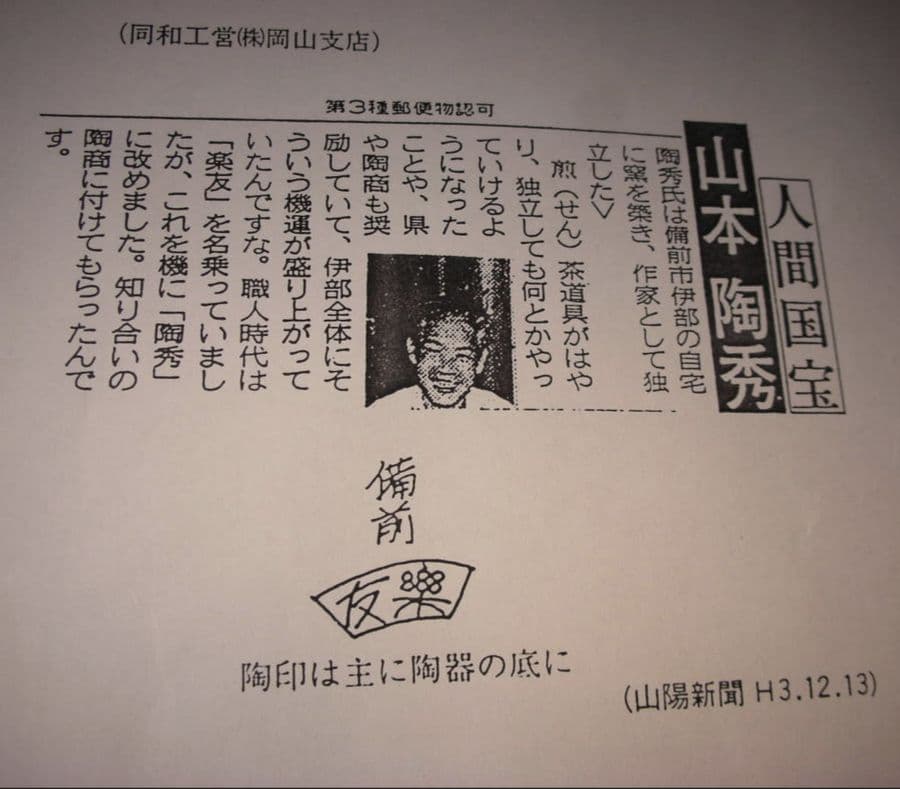 (同和工営㈱岡山支店)
第3種郵便物認可
人間国宝
山本 陶秀
陶秀氏は備前市伊部の自宅
に窯を築き、作家として独
立した▽
煎(せん)茶道具がはや
り、独立しても何とかやっ
ていけるよ
うになった
ことや、県
や陶商も奨
励していて、伊部全体にそ
ういう機運が盛り上がって
いたんですな。職人時代は
「楽友」を名乗っていまし
たが、これを機に「陶秀」
に改めました。知り合いの
陶商に付けてもらったんで
す。
備前
友樂
陶印は主に陶器の底に
(山陽新聞 H3.12.13)